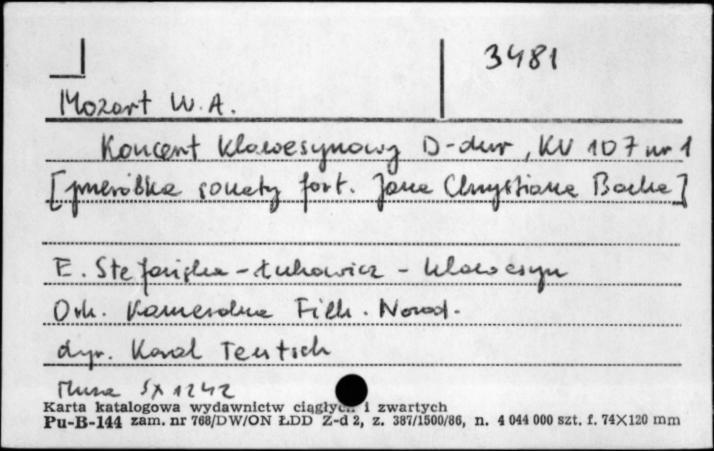 3481
Mozart W. A.
Koncert klawesynowy D-dur, KV 107 nr 1
[przeróbka sonaty fort. Jana Chrystiana Bacha]
E. Stefańska-Łukowicz - klawesyn
Ork. Kameralna Filh. Narod.
dyr. Karol Teutsch
Muza SX 1242
Karta katalogowa wydawnictw ciągłych i zwartych
Pu-B-144 zam. nr 768/DW/ON ŁDD Z-d 2, z. 387/1500/86, n. 4 044 000 szt. f. 74×120 mm